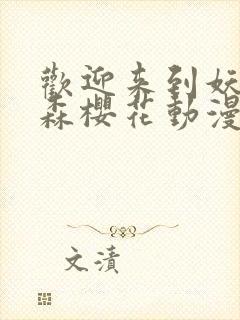 歡迎來到妖
森櫻花動漫
文濆